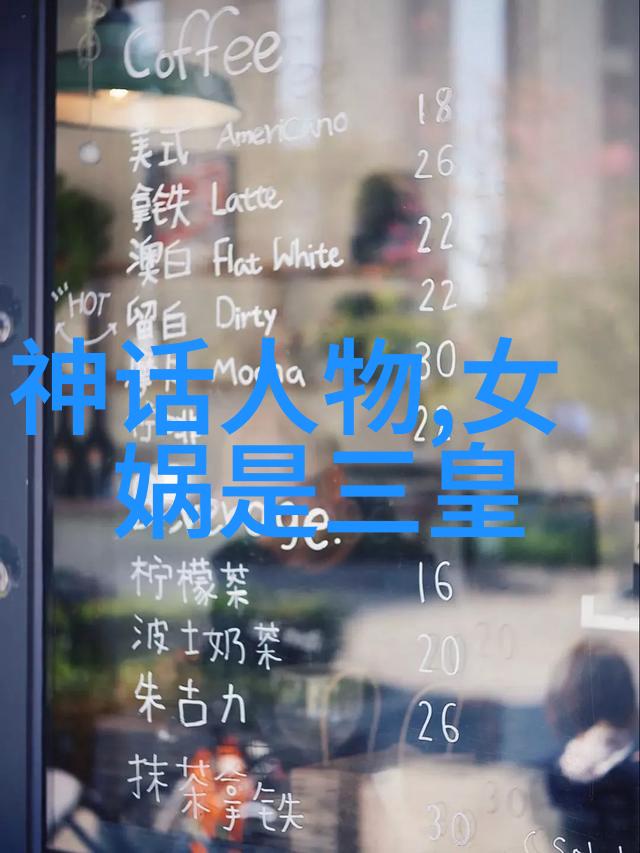 Coffee
美式 Americano 18
拿铁 Latte 26
澳白 Flat White 22
HOT
留白 Dirty 22
Mocha 30
神话人物,女
娲是三皇
柠檬茶 16
波士奶茶 20
朱古力 26
抹茶拿铁 30